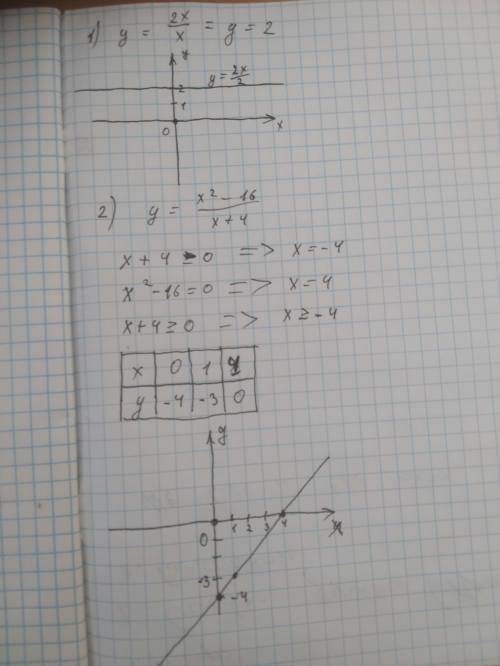 1) y = 2x/x = y = 2
y
y = 2x/2
2
1
0
x
2) y = x² - 16 / x + 4
x + 4 = 0 => x = -4
x² - 16 = 0 => x = 4
x + 4 ≥ 0 => x ≥ -4
x 0 1 4
y -4 -3 0
y
0 1 2 3 4 x
-3
-4